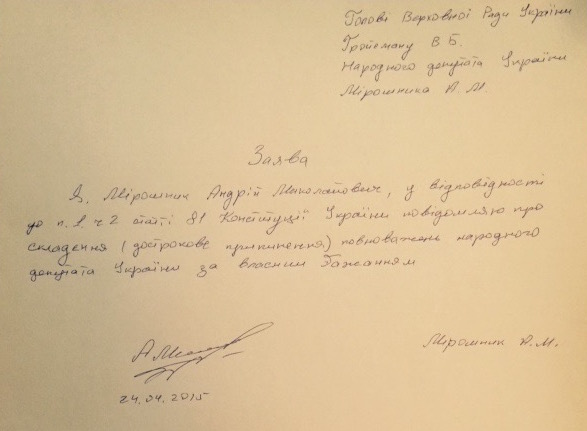 Голові Верховної Ради України
Гройсману В Б.
Народного депутата України
Мірошника А. М.
Заява
Я, Мірошник Андрій Миколайович, у відповідності
до п. 1, ч 2 статті 81 Конституції України повідомляю про
складення (дострокове припинення) повноважень народного
депутата України за власним бажанням
Мірошник А.М.
24.04.2015